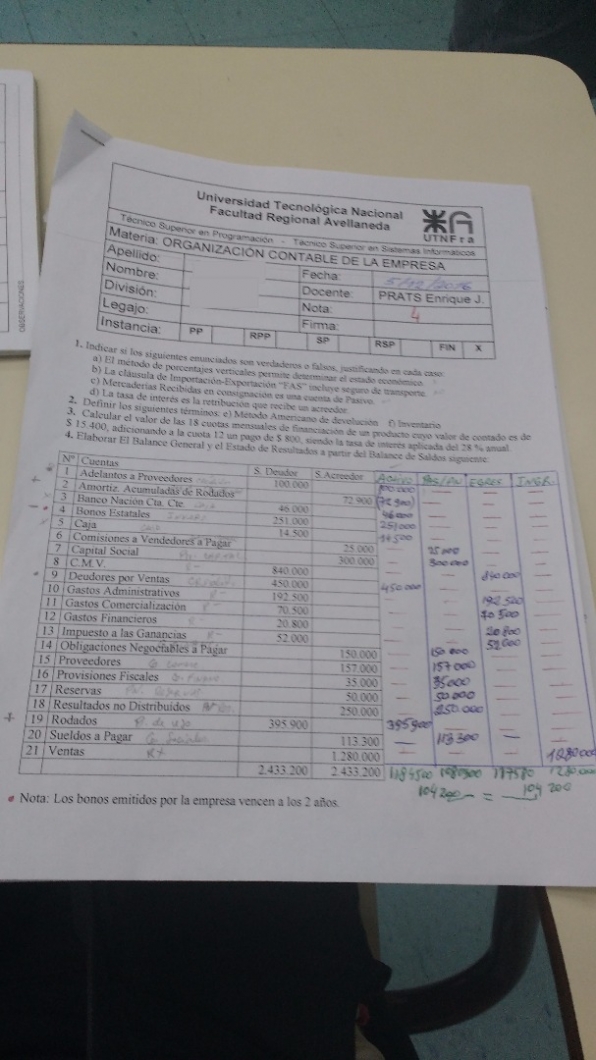 OBSERVACIONES
Universidad Tecnológica Nacional
Facultad Regional Avellaneda
UTNFra
Técnico Superior en Programación - Técnico Superior en Sistemas Informáticos
Materia: ORGANIZACIÓN CONTABLE DE LA EMPRESA
Apellido: Fecha: 5/12/2016
Nombre: Docente: PRATS Enrique J.
División: Nota: 4
Legajo: Firma:
Instancia: PP RPP SP RSP FIN X
1. Indicar si los siguientes enunciados son verdaderos o falsos, justificando en cada caso:
a) El método de porcentajes verticales permite determinar el estado económico.
b) La cláusula de Importación-Exportación "FAS" incluye seguro de transporte.
c) Mercaderías Recibidas en consignación es una cuenta de Pasivo.
d) La tasa de interés es la retribución que recibe un acreedor.
2. Definir los siguientes términos: e) Método Americano de devolución f) Inventario
3. Calcular el valor de las 18 cuotas mensuales de financiación de un producto cuyo valor de contado es de
$ 15.400, adicionando a la cuota 12 un pago de $ 800, siendo la tasa de interés aplicada del 28 % anual.
4. Elaborar El Balance General y el Estado de Resultados a partir del Balance de Saldos siguiente:
Nº Cuentas S. Deudor S. Acreedor ACTIVO PAS/PN EGRES INGR.
1 Adelantos a Proveedores 100.000 100.000
2 Amortiz. Acumuladas de Rodados 72.900 (72.900)
3 Banco Nación Cta. Cte. 46.000 46.000
4 Bonos Estatales 251.000 251.000
5 Caja 14.500 14.500
6 Comisiones a Vendedores a Pagar 25.000 25.000
7 Capital Social 300.000 300.000
8 C.M.V. 840.000 840.000
9 Deudores por Ventas 450.000 450.000
10 Gastos Administrativos 192.500 192.500
11 Gastos Comercialización 70.500 70.500
12 Gastos Financieros 20.800 20.800
13 Impuesto a las Ganancias 52.000 52.000
14 Obligaciones Negociables a Pagar 150.000 150.000
15 Proveedores 157.000 157.000
16 Provisiones Fiscales 35.000 35.000
17 Reservas 50.000 50.000
18 Resultados no Distribuidos 250.000 250.000
19 Rodados 395.900 395.900
20 Sueldos a Pagar 113.300 113.300
21 Ventas 1.280.000 1280.000
2.433.200 2.433.200
104200 = 104200
Nota: Los bonos emitidos por la empresa vencen a los 2 años.